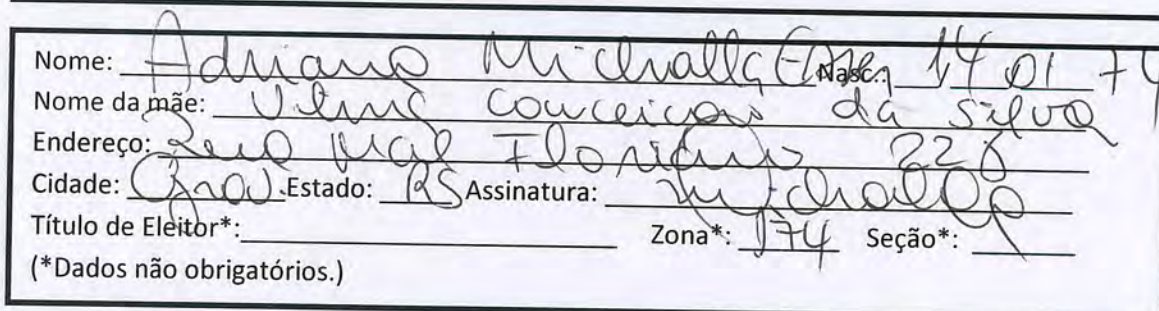 Nome: Adriano Nasc.: 14 01 74
Nome da mãe: Vilma conceicao da silva
Endereço: Rua Mal Floriano
Cidade: Estado: RS Assinatura:
Título de Eleitor*: Zona*: 174 Seção*:
(*Dados não obrigatórios.)